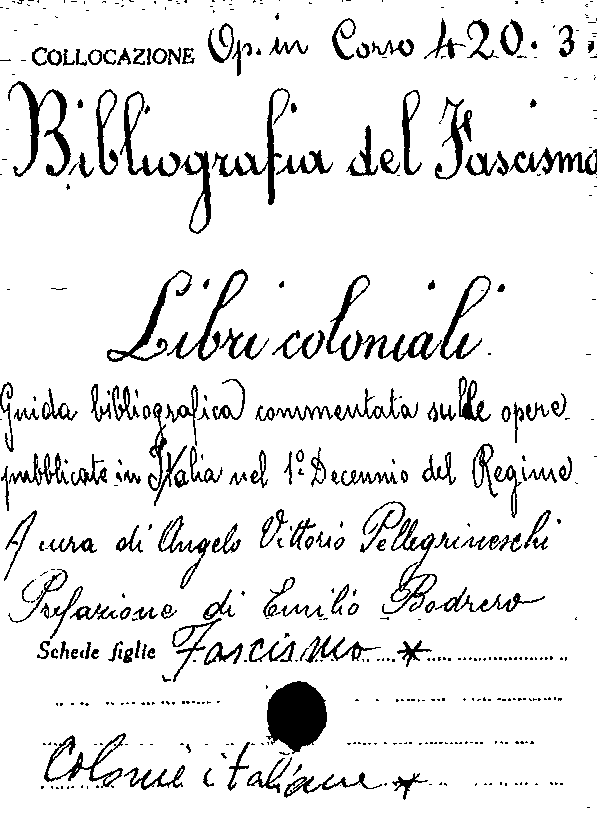 COLLOCAZIONE Op. in Corso 420. 3.
Bibliografia del Fascismo
Libri coloniali.
Guida bibliografica commentata sulle opere
pubblicate in Italia nel 1º Decennio del Regime
A cura di Angelo Vittorio Pellegrineschi
Prefazione di Emilio Bodrero
Schede figlie Fascismo *
Colonie italiane *